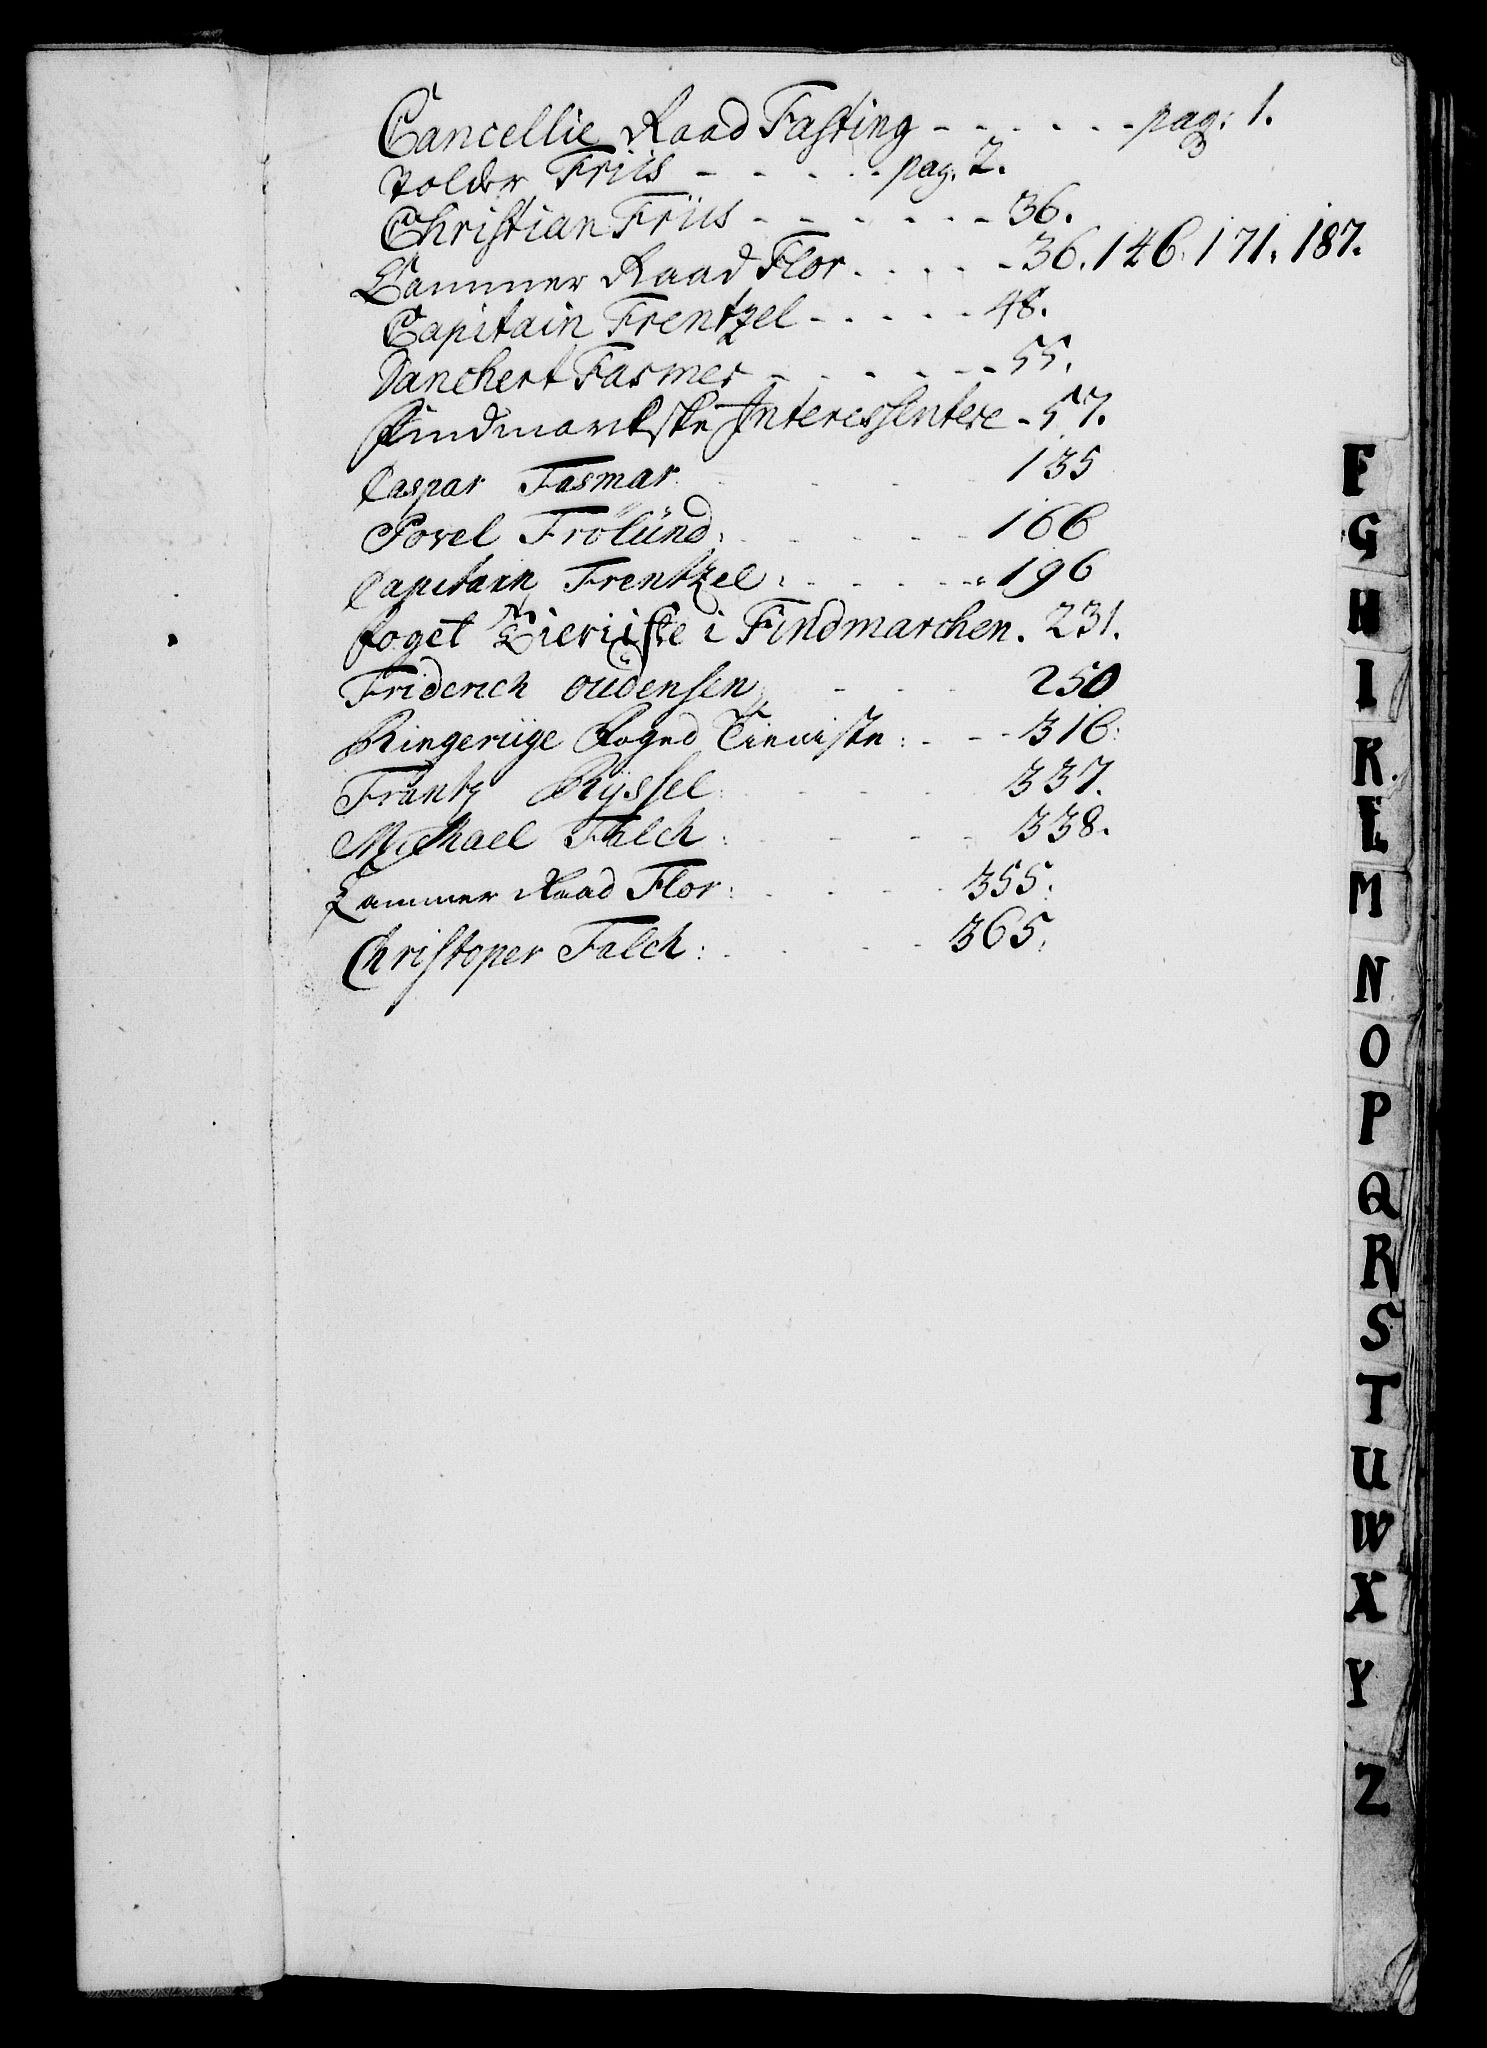 Cancellie Raad Fasting - - - - - - pag: 1.
Tolder Friis - - - - - pag. 2.
Christian Friis - - - - - - - 36.
Cammer Raad Flor - - - - - 36. 146. 171. 187.
Capitain Frentzel - - - - - 48.
Danchert Fasmer - - - - - - - 55.
Findmarkske Interessentere - 57.
Caspar Fasmar - - - - 135
Povel Frölünd: - - - - - 166
Capitain Frentzel: - - - - - 196
foget i Findmarchen. 231.
Friderich oudensen - - - - 250
Ringeriige Foged : - - - 316:
Frantz Ryssel: - - - - 337.
Michael Falch: - - - - 338.
Cammer Raad Flor: - - - - 355:
Christoper Falch: - - - - 365:
F
G
H
I
K
L
M
N
O
P
Q
R
S
T
U
W
X
Y
Z